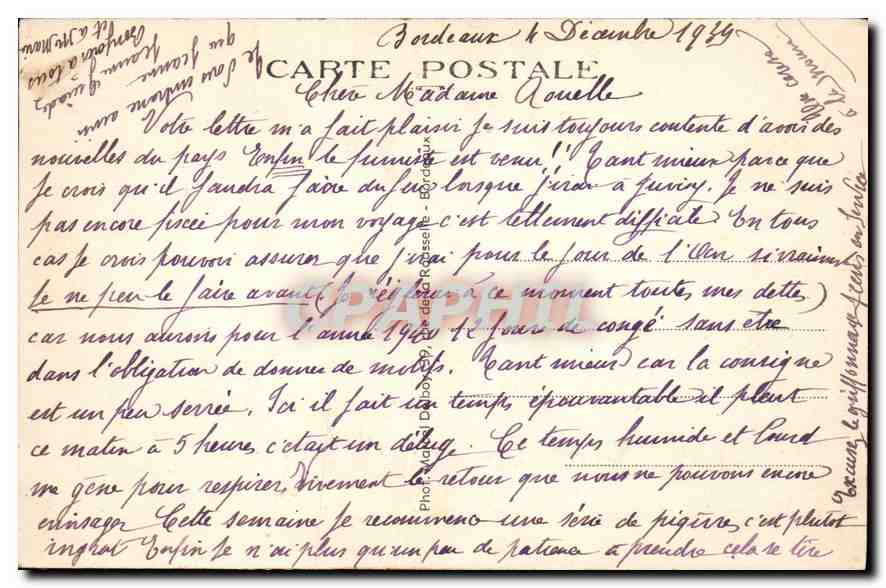 Bordeaux 4 Décembre 1939
CARTE POSTALE
Chère Madame
Votre lettre m'a fait plaisir je suis toujours contente d'avoir des
nouvelles du pays Enfin le fumiste est venu!! Tant mieux parce que
je crois qu'il faudra faire du feu lorsque j'irai à Juvisy. Je ne suis
pas encore fixée pour mon voyage c'est tellement difficile En tous
cas je crois pouvoir assurer que j'irai pour le jour de l'An si vraiment
je ne peu le faire avant (je réglerai à ce moment toutes mes dettes)
car nous aurons pour l'année 1940 12 jours de congé sans être
dans l'obligation de donner de motifs. Tant mieux car la consigne
est un peu serrée. Ici il fait un temps épouvantable il pleut
ce matin à 5 heures c'était un déluge. Ce temps humide et lourd
me gêne pour respirer, vivement le retour que nous ne pouvons encore
envisager Cette semaine je recommence une série de piqures c'est plutôt
ingrat Enfin je n'ai plus qu'un peu de patience à prendre cela se tire
Excusez le griffonnage je suis en service
Une caresse
à la Moune
Je vous embrasse ainsi
que Jeanne
Bonjour à tous
et à M. Marie
Phot. Marcel Delboy, rue de la Rousselle - Bordeaux
CPAPHIL